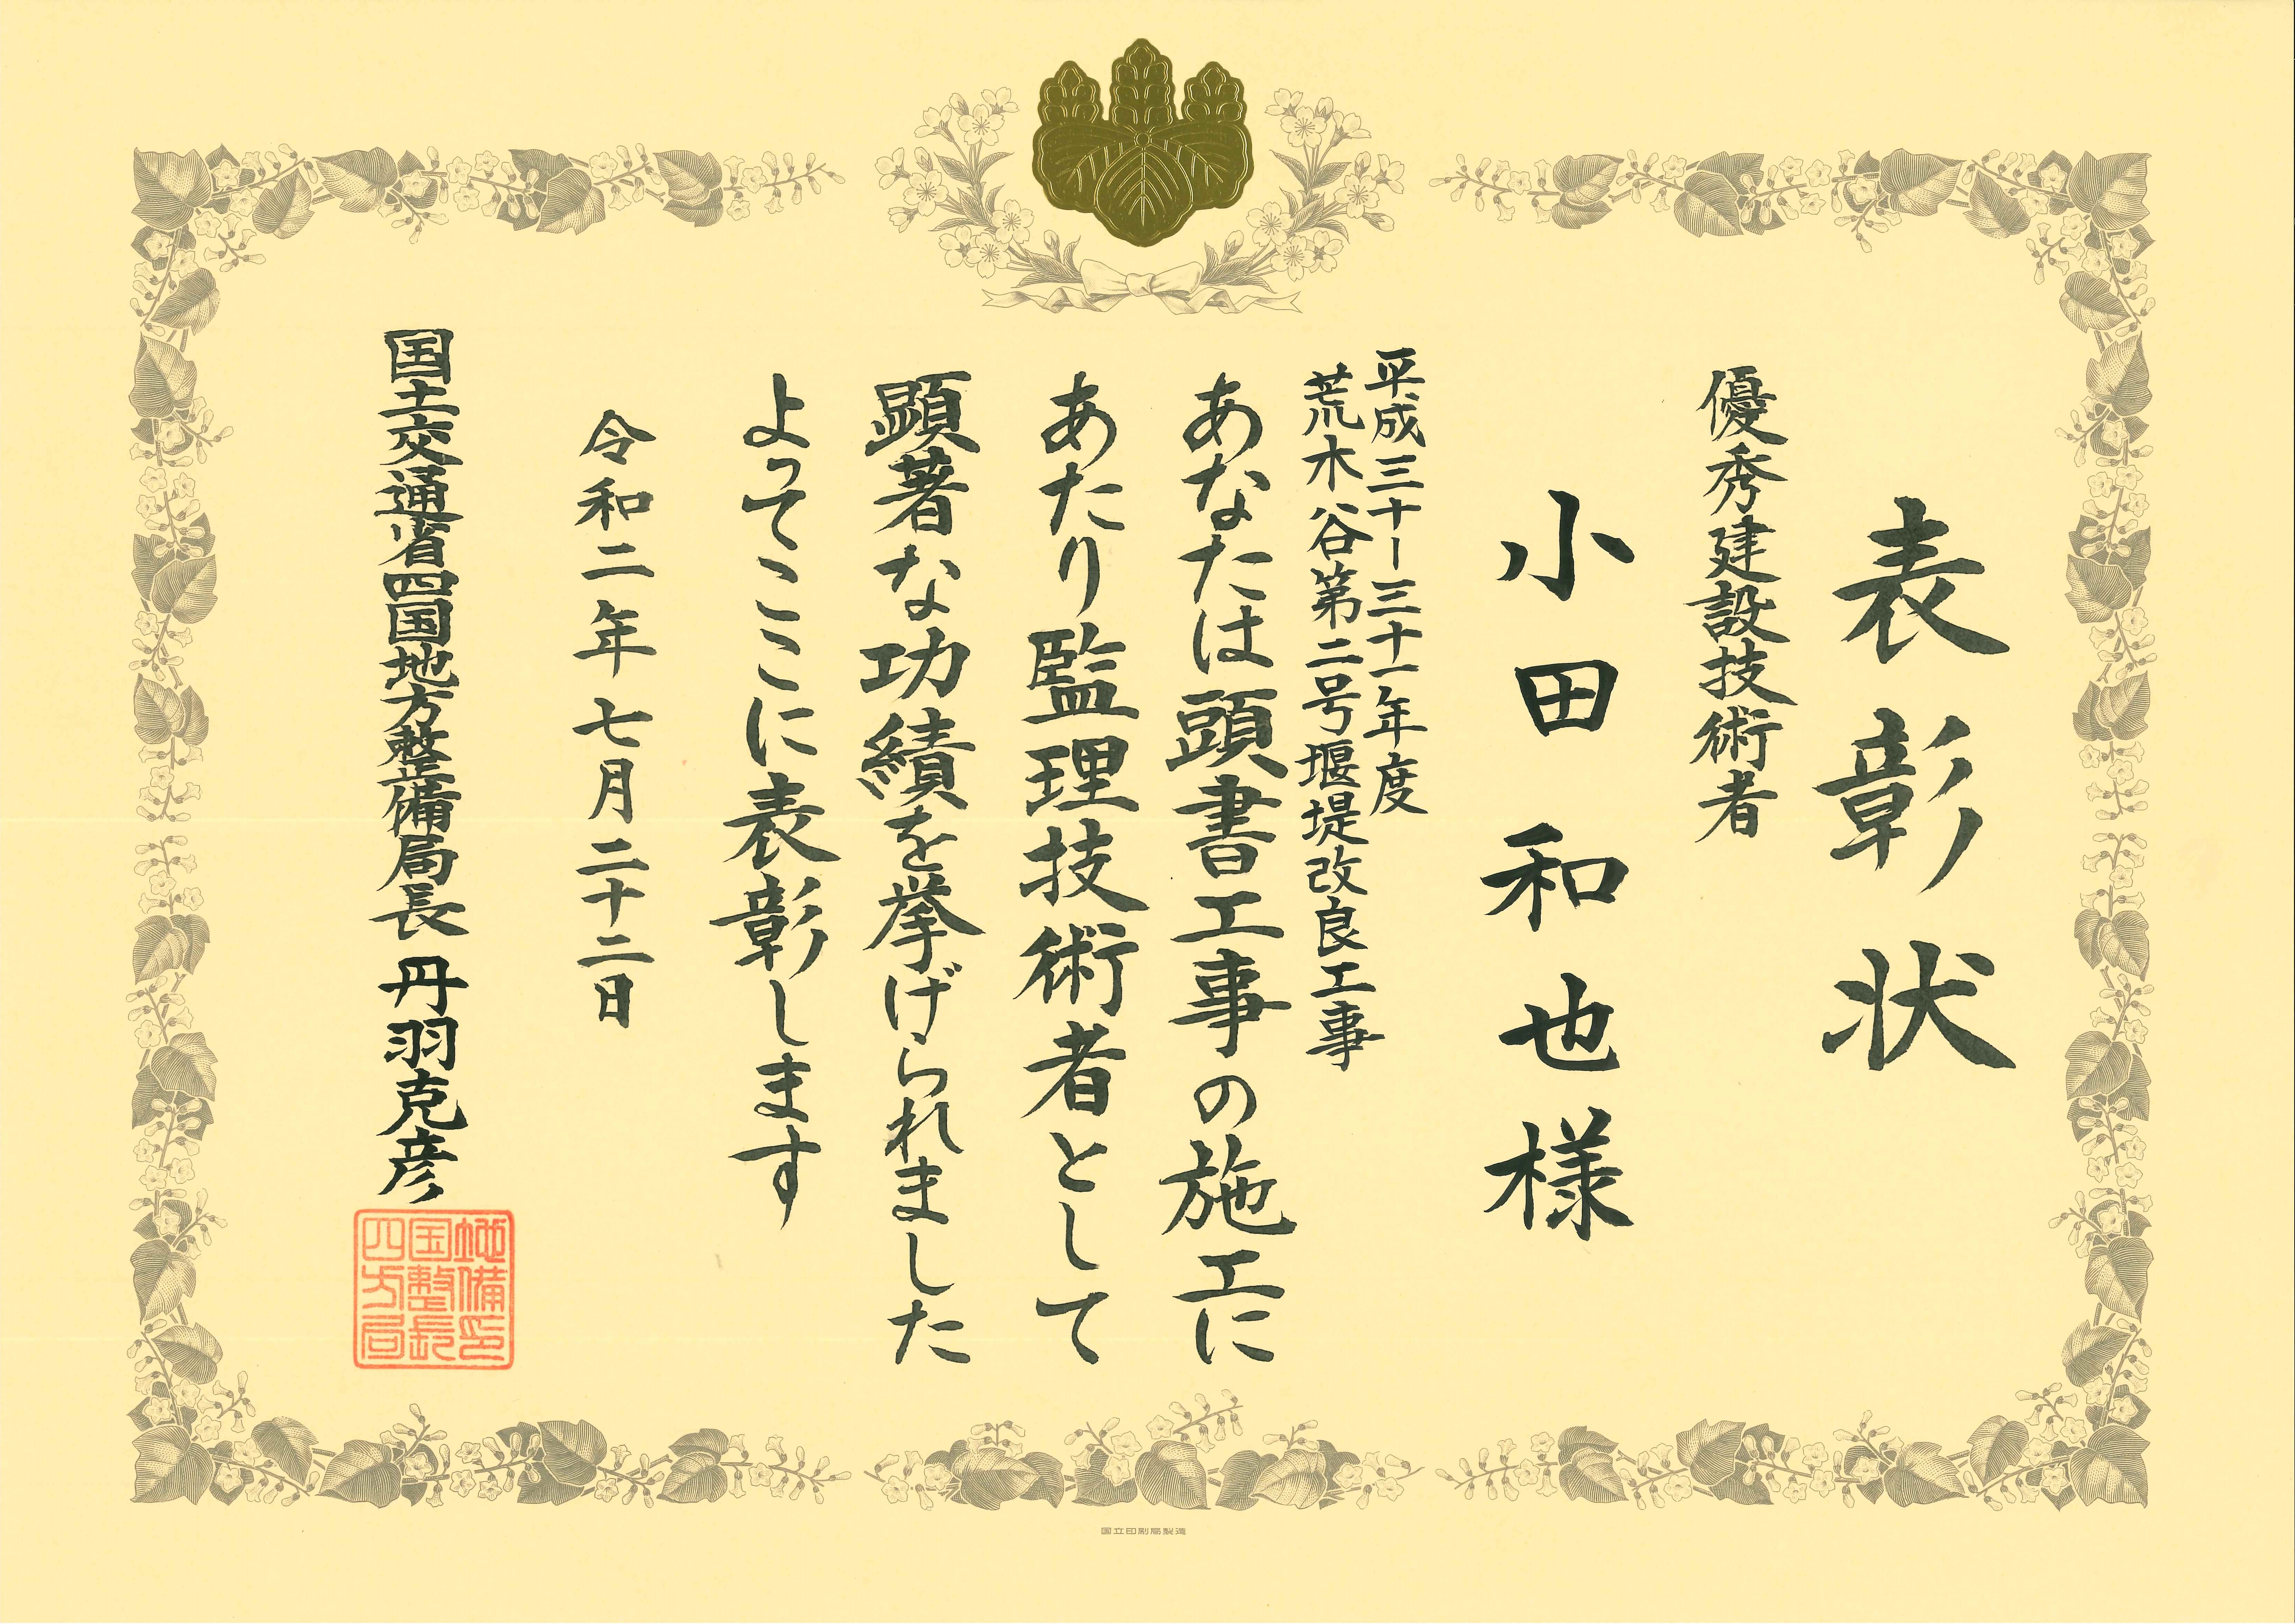 表彰状
優秀建設技術者
小田和也様
平成三十ー三十一年度
荒木谷第二号堰堤改良工事
あなたは頭書工事の施工に
あたり監理技術者として
顕著な功績を挙げられました
よってここに表彰します
令和二年七月二十二日
国土交通省四国地方整備局長 丹羽克彦
四国地方整備局長印
国立印刷局製造